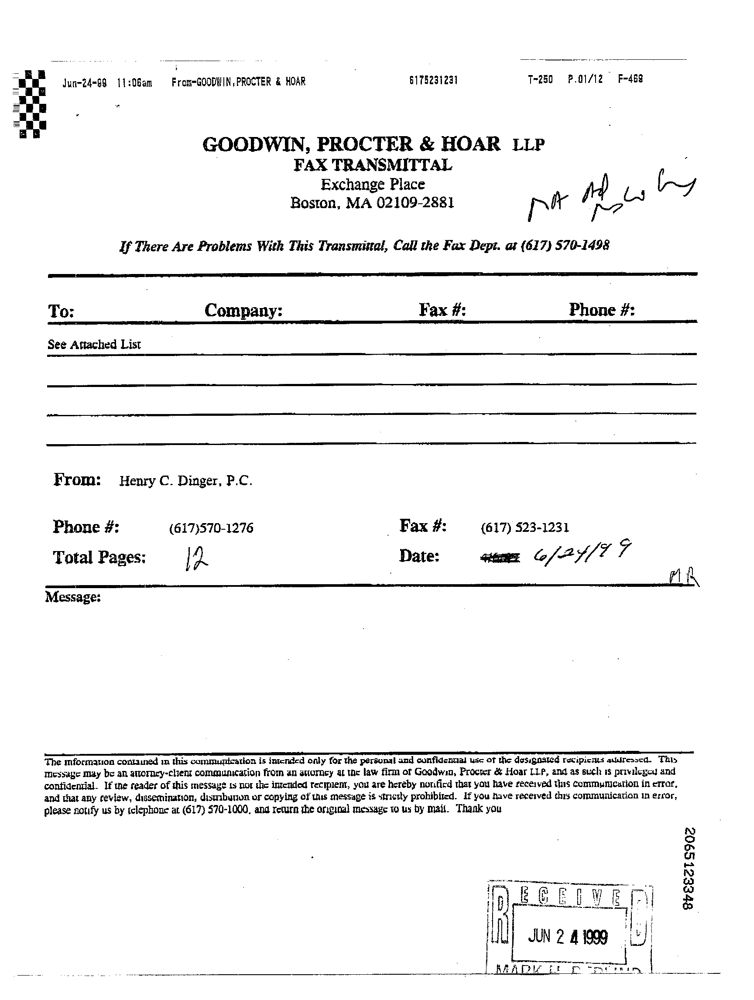 Jun-24-99 11:08am From-GOODWIN,PROCTER & HOAR 6175231231 T-250 P.01/12 F-469
GOODWIN, PROCTER & HOAR LLP
FAX TRANSMITTAL
Exchange Place
Boston, MA 02109-2881
If There Are Problems With This Transmittal, Call the Fax Dept. at (617) 570-1498
To: Company: Fax #: Phone #:
See Attached List
From: Henry C. Dinger, P.C.
Phone #: (617)570-1276 Fax #: (617) 523-1231
Total Pages: 12 Date: 6/24/99
MR
Message:
The information contained in this communication is intended only for the personal and confidential use of the designated recipients addressed. This
message may be an attorney-client communication from an attorney at the law firm of Goodwin, Procter & Hoar LLP, and as such is privileged and
confidential. If the reader of this message is not the intended recipient, you are hereby notified that you have received this communication in error,
and that any review, dissemination, distribution or copying of this message is strictly prohibited. If you have received this communication in error,
please notify us by telephone at (617) 570-1000, and return the original message to us by mail. Thank you
2065123348
RECEIVED
JUN 24 1999